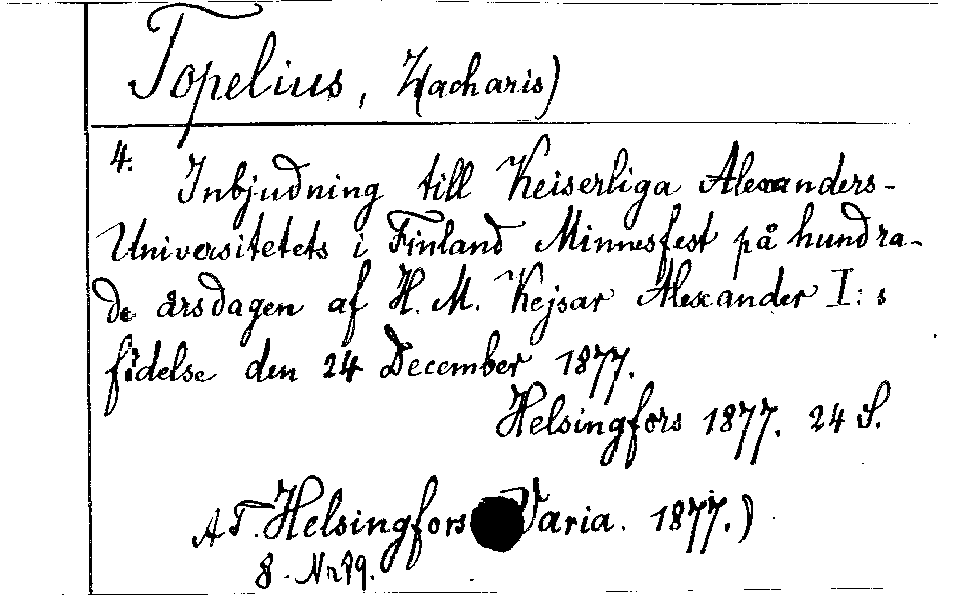 Topelius, Z(acharis)
4.
Inbjudning till Keiserliga Alexanders-
Universitetets i Finland Minnesfest på hundra-
de årsdagen af H. M. Kejsar Alexander I:s
födelse den 24 December 1877.
Helsingfors 1877. 24 S.
A T. Helsingfors Varia. 1877.)
8. Nr 89.